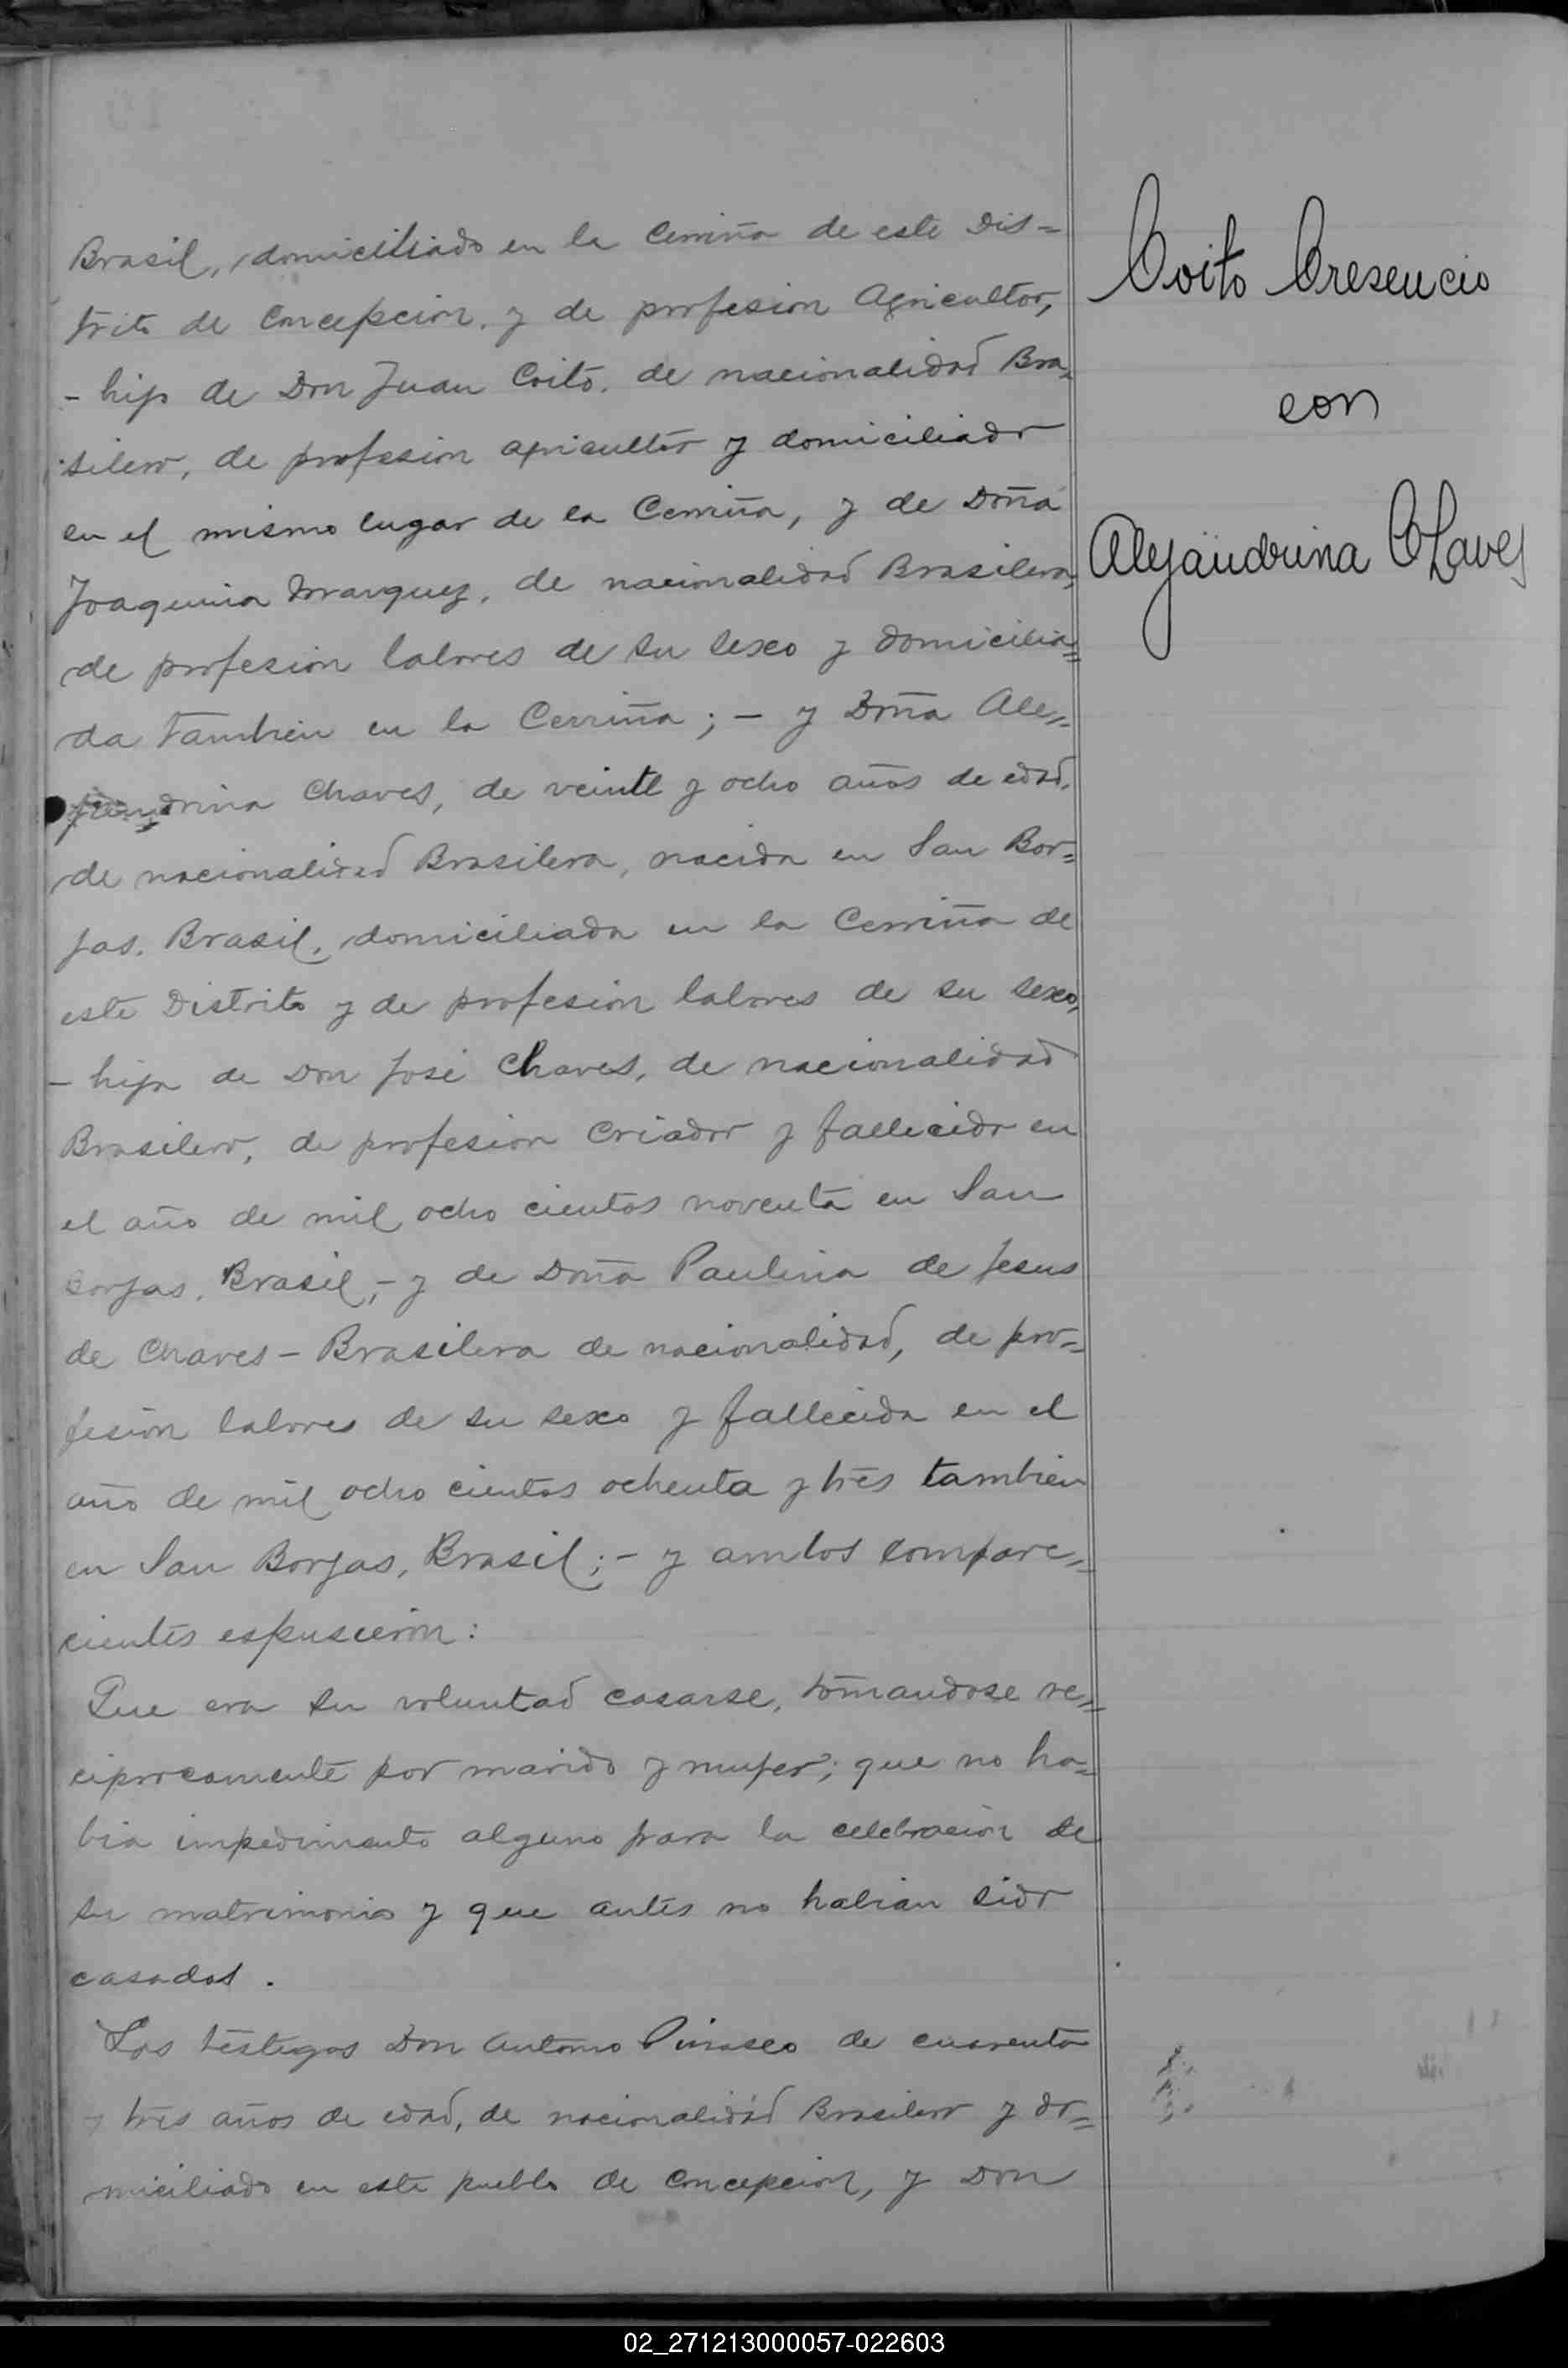 Brasil, domiciliado en la Cerriña de este Dis=
trito de Concepcion, y de profesion Agricultor,
- hijo de Don Juan Coito, de nacionalidad Bra=
silero, de profesion agricultor y domiciliado
en el mismo lugar de la Cerriña, y de Doña
Joaquina Marquez, de nacionalidad Brasilera,
de profesion labores de su sexo y domicilia=
da tambien en la Cerriña; - y Doña Ale=
jandrina Chaves, de veinte y ocho años de edad,
de nacionalidad Brasilera, nacida en San Bor=
jas, Brasil, domiciliada en la Cerriña de
este Distrito y de profesion labores de su sexo,
- hija de Don José Chaves, de nacionalidad
Brasilero, de profesion Criador y fallecido en
el año de mil ocho cientos noventa en San
Borjas, Brasil, - y de Doña Paulina de Jesus
de Chaves - Brasilera de nacionalidad, de pro=
fesion labores de su sexo y fallecida en el
año de mil ocho cientos ochenta y tres tambien
en San Borjas, Brasil; - y ambos compare=
cientes espusieron:
Que era su voluntad casarse, tomandose re=
ciprocamente por marido y mujer; que no ha=
bia impedimento alguno para la celebracion de
su matrimonio y que antes no habian sido
casados.
Los testigos Don Antonio Pinasco de cuarenta
y tres años de edad, de nacionalidad Brasilero y do=
miciliado en este pueblo de Concepcion, y Don
Coito Cresencio
con
Alejandrina Chaves
02_271213000057-022603